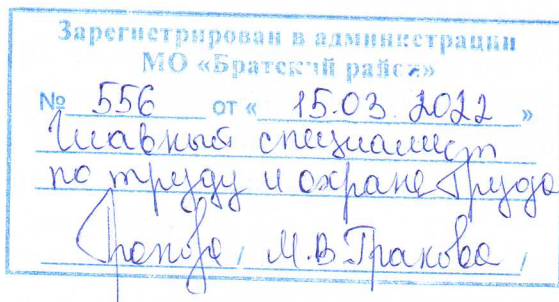 Зарегистрирован в администрации
МО «Братский район»
№ 556 от « 15.03.2022 »
Главный специалист
по труду и охране труда
М.В. Гракова /